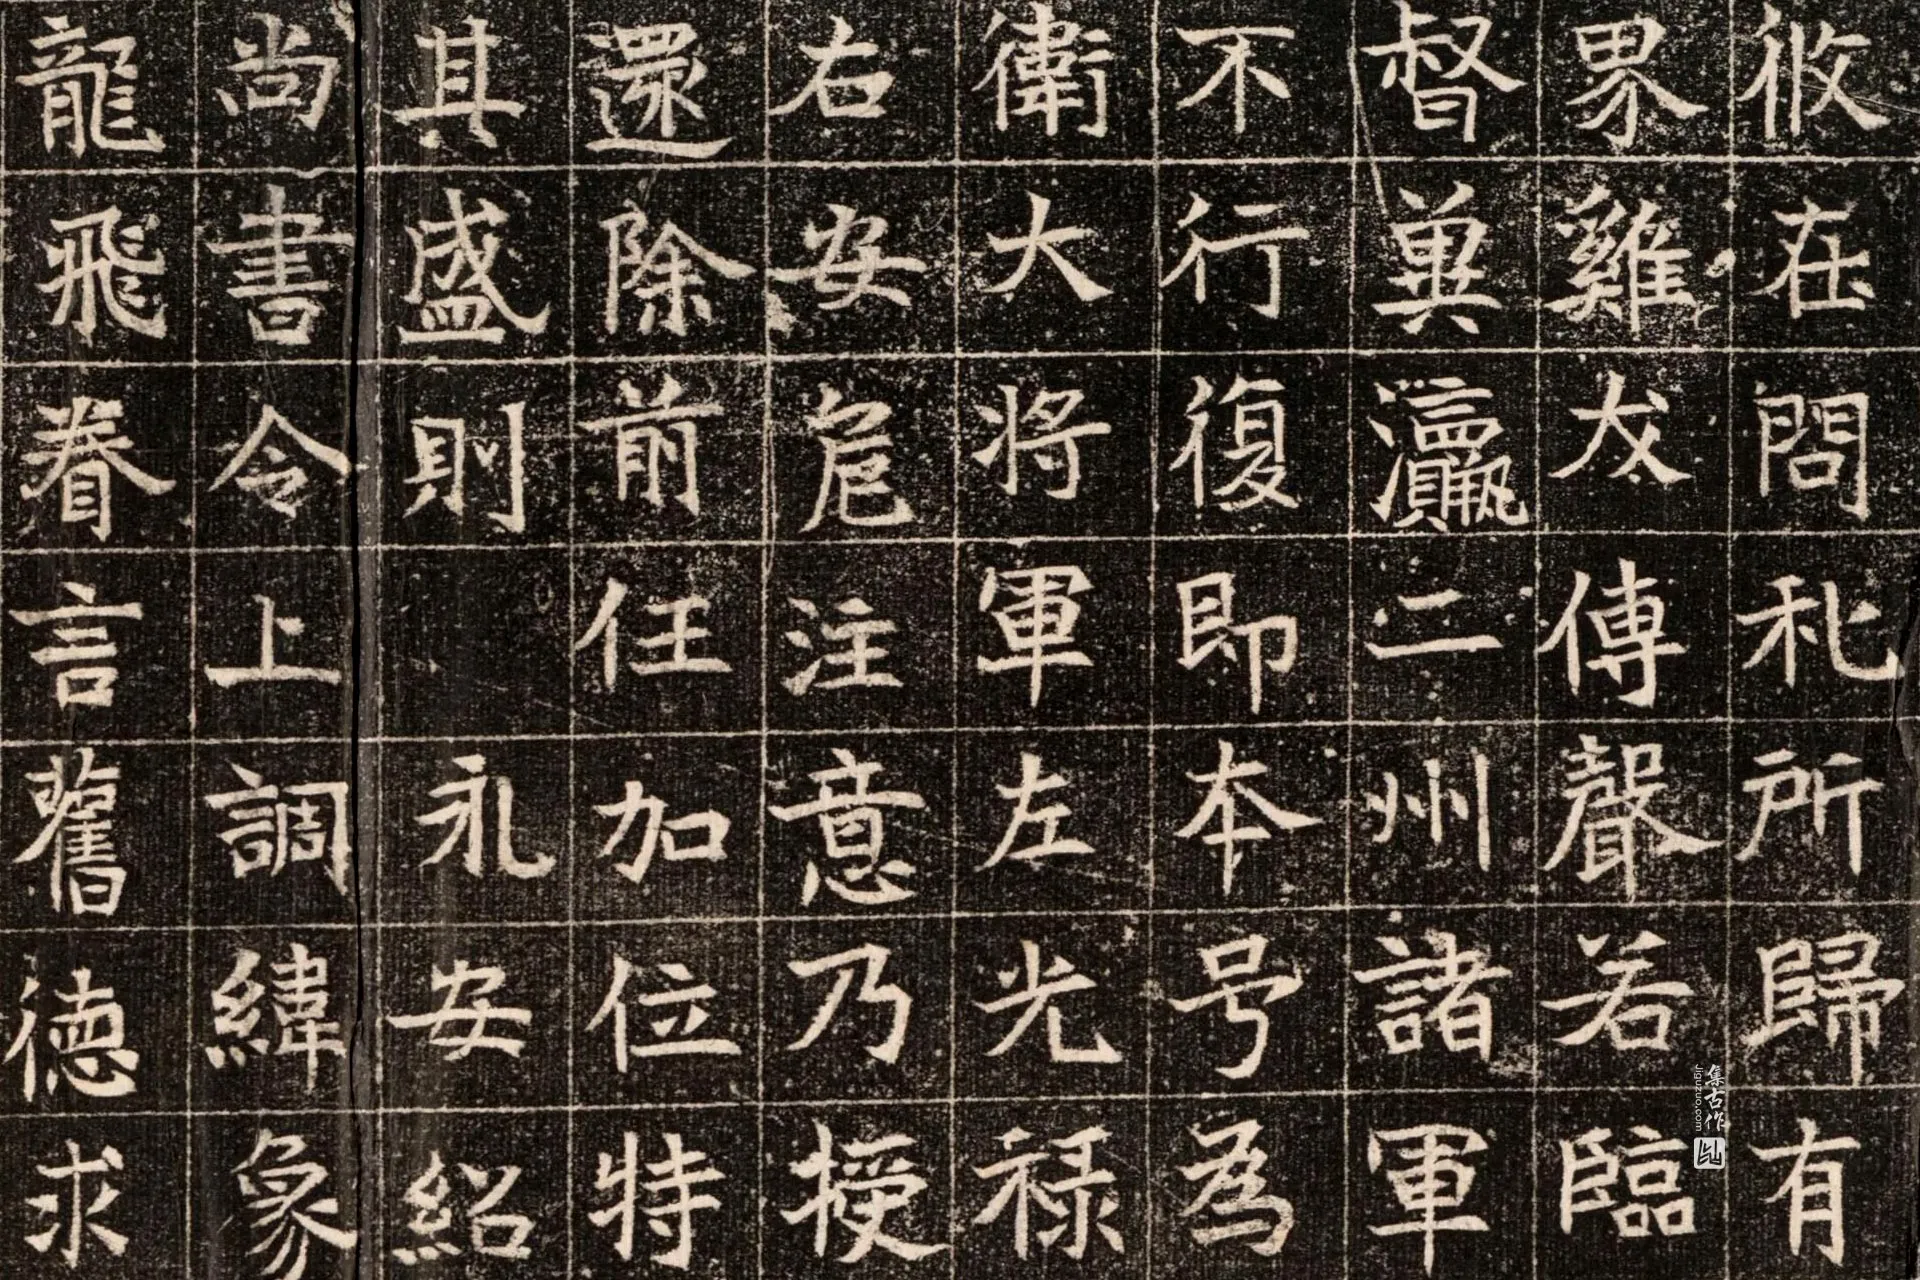 攸在問礼所歸有
界雞犬傳聲若臨
督冀瀛二州諸軍
不行復即本号為
衛大將軍左光祿
右安扆注意乃授
還除前任加位特
其盛則永安紹
尚書令上調緯象
龍飛眷言舊德求
集古作
jiguzuo.com